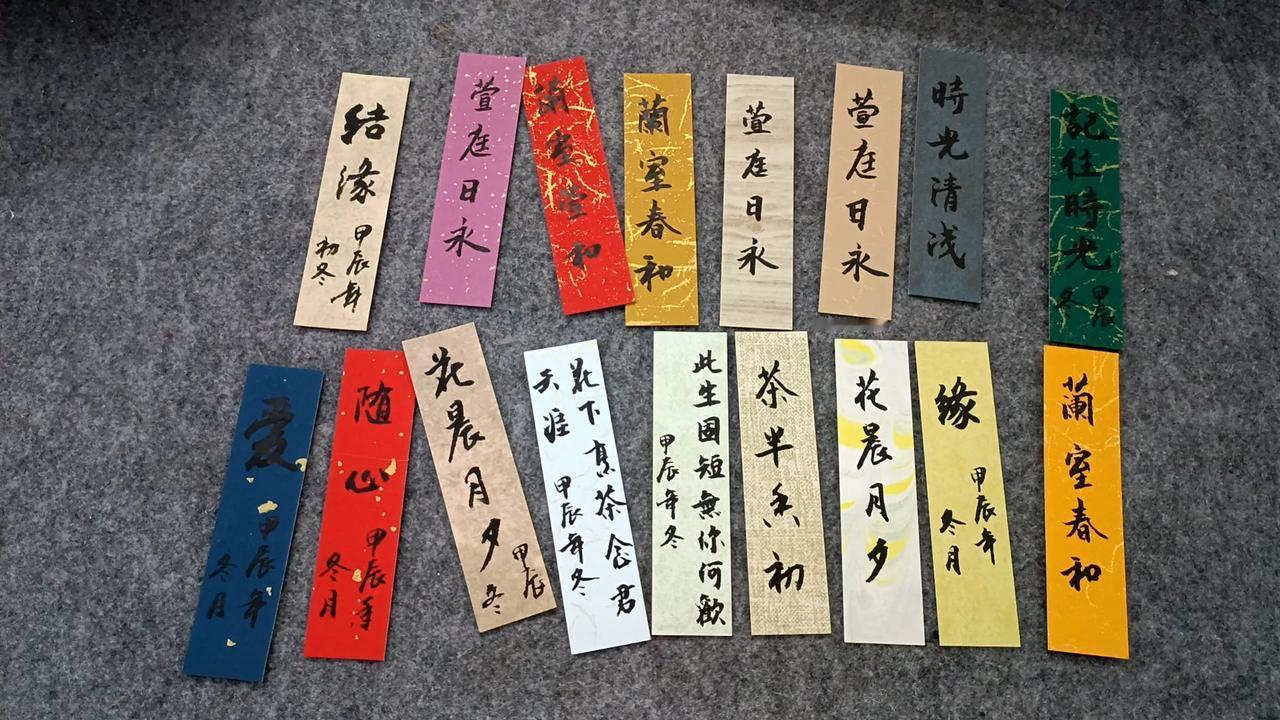 结缘
甲辰年
初冬
萱庭日永
蘭室和
蘭室春和
萱庭日永
萱庭日永
時光清浅
記住時光
甲辰
冬
爱
甲辰年
冬月
随心
甲辰年
冬月
花晨月夕
甲辰
冬
花下烹茶念君
天涯
甲辰年冬
此生固短無你何歡
甲辰年冬
茶半香初
花晨月夕
缘
甲辰年
冬月
蘭室春和